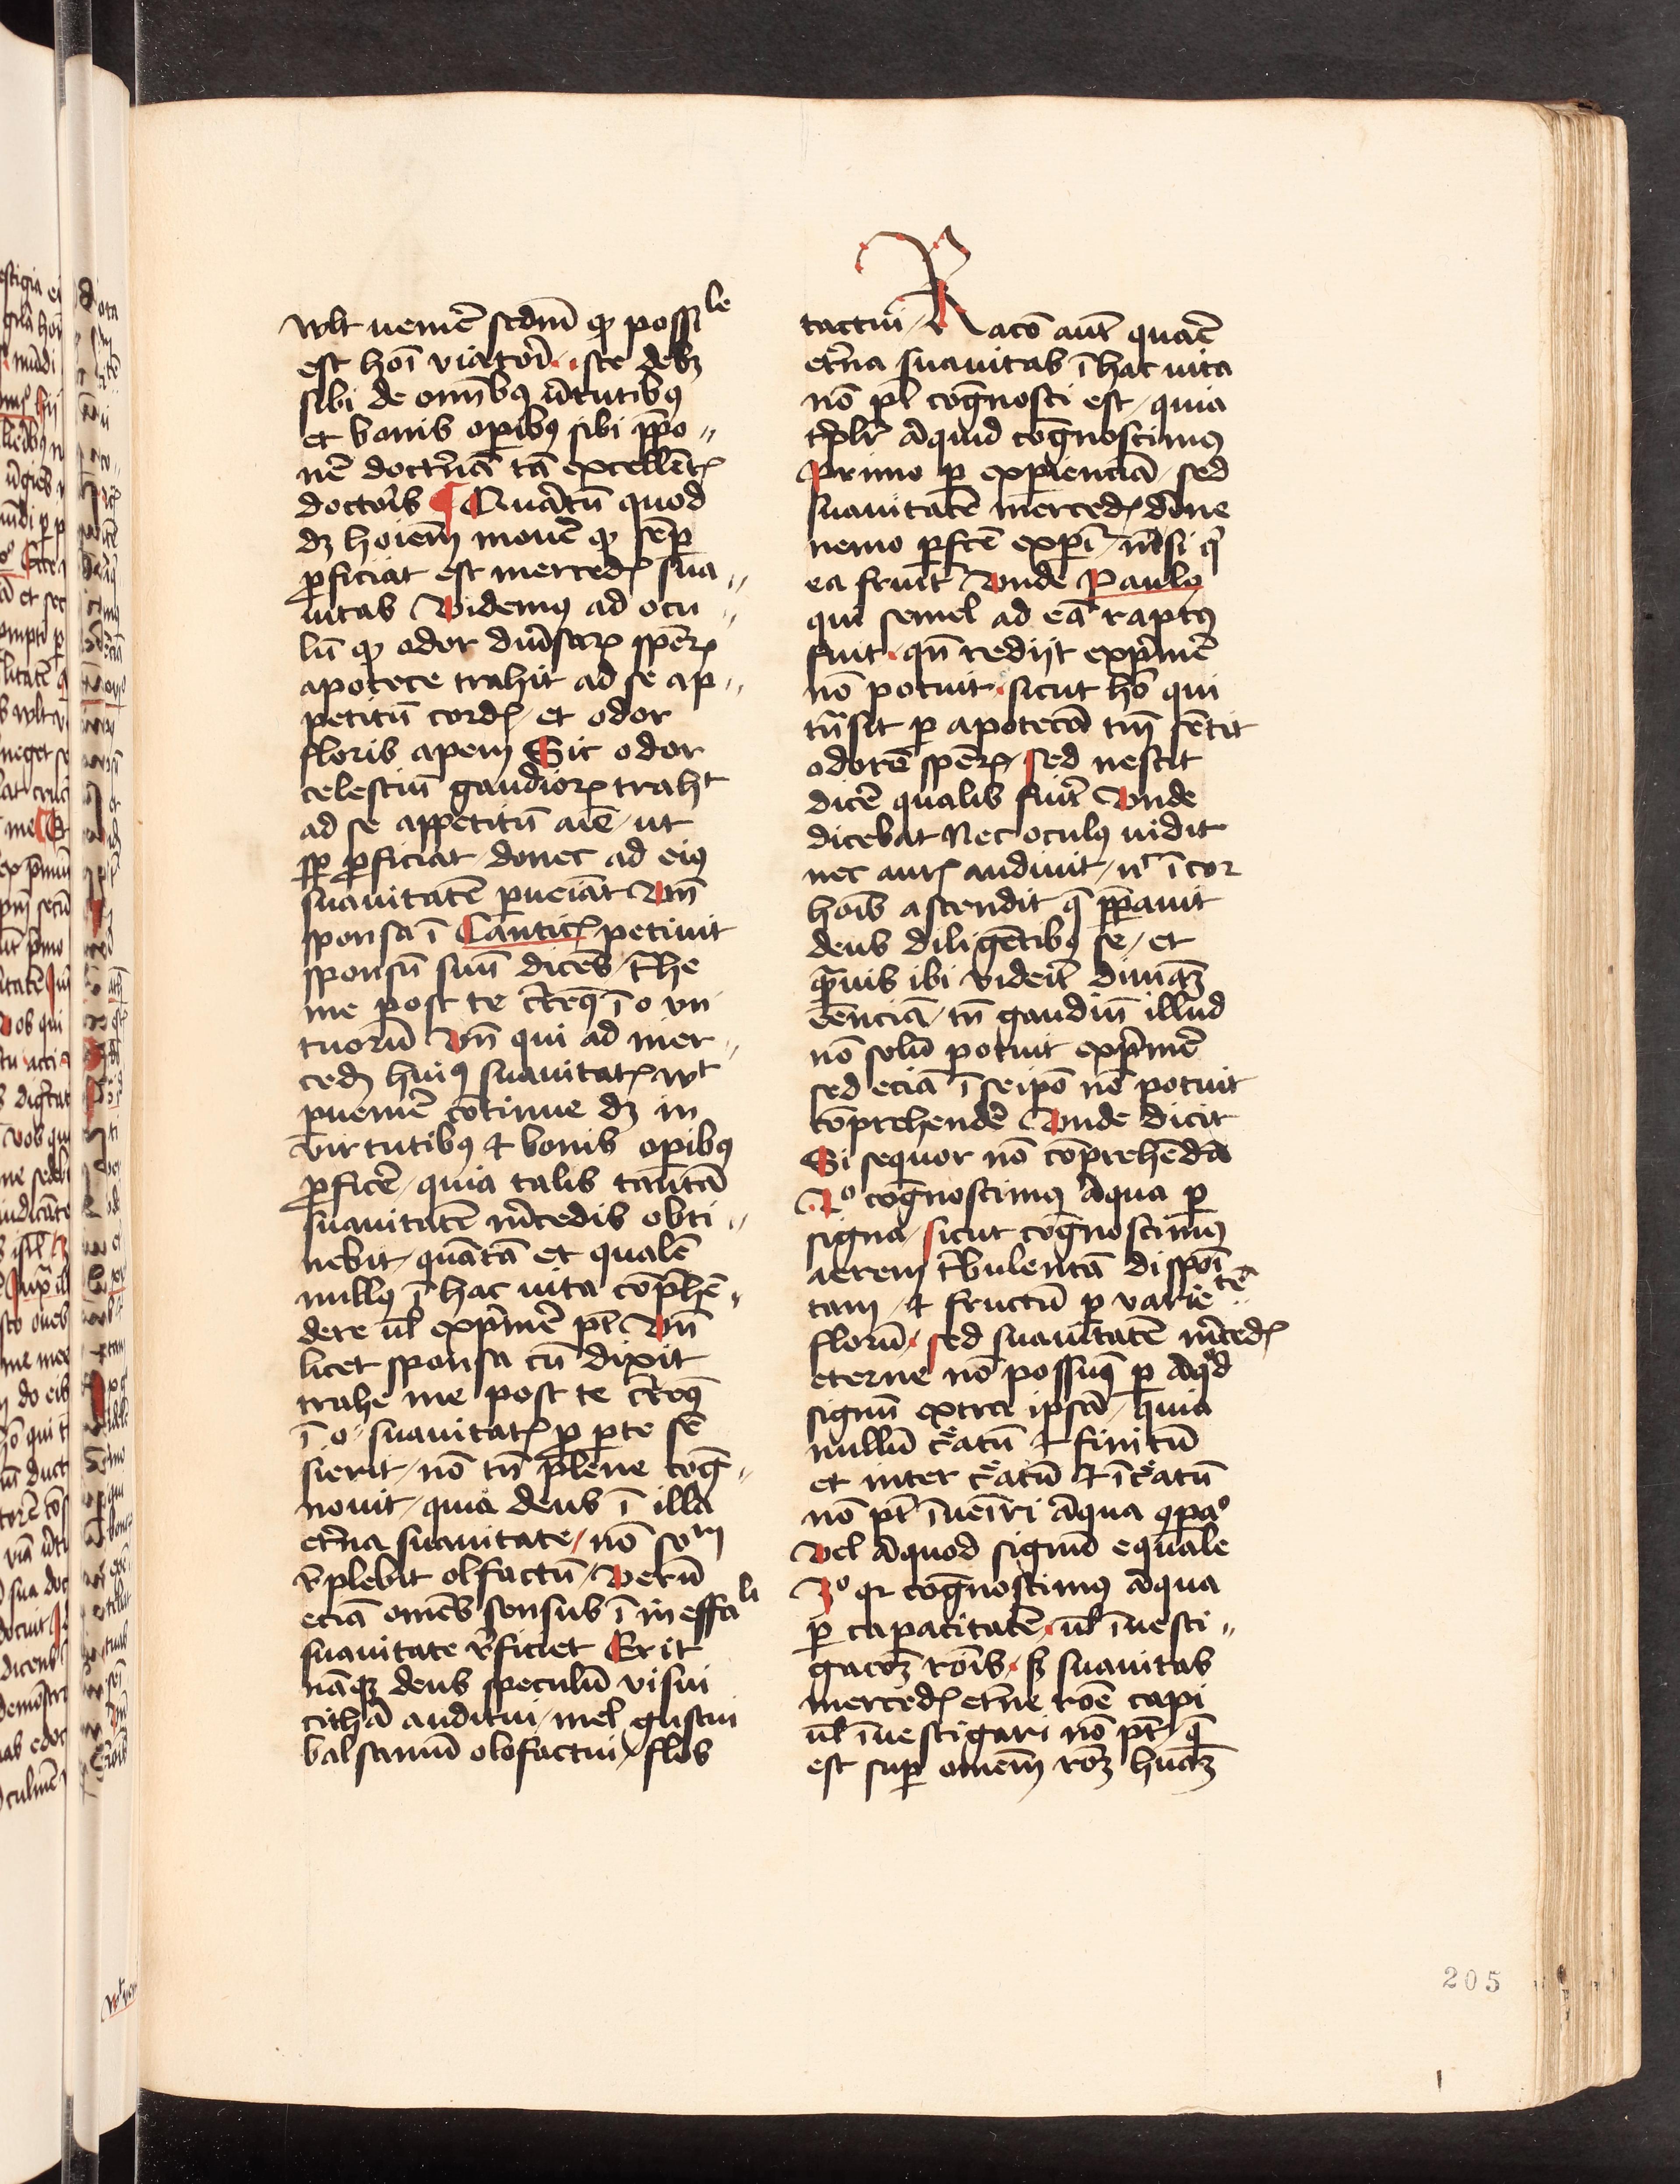 wlt uenire̅ sedm̅ qꝫ possi^le
est hoi̅ viatori̅ · iste debꝫ
sibi de omnibꝰ v̅tutibꝰ
et bonis oꝑibꝰ sibi ꝓpo⸗
ne̅ doctri̅a̅ ta̅ excelle̅tꝭ
doctoris ¶ Quartu̅ quod
dꝫ hoi̅em moue̅ qꝫ semꝑ
ꝓficiat est mercedꝭ sua⸗
uitas Videmꝰ ad ocu⸗
lu̅ qꝫ odor diu̅saꝝ spe̅ꝝ
apotece trahit ad se ap⸗
petitu̅ cordꝭ / et odor
floris apem Sic odor
celestiu̅ gaudioꝝ trahᵗ
ad se appetitu̅ aı̅e / ut
sꝑ ꝓficiat / donec ad eiꝰ
suauitate̅ ꝑueiat Vn̅
sponsa i̅ Canticꝭ petiuit
sponsu̅ suu̅ dice̅s / trahe
me post te c̅reqꝫ i̅ o vn
tuoru̅ Vn̅ qui ad mer⸗
cedꝭ huiꝰ suauitatꝭ wᵗ
ꝑuenire̅ co̅tinue dꝫ in
virtutibꝰ ⁊ bonis oꝑibꝰ
ꝓfice̅ / quia talis tanta̅
suauitate̅ m̅cedis obti⸗
nebit / qua̅ta̅ et quale̅
nullꝰ i̅ hac uita co̅prehe̅⸗
dere ul̅ exprime̅ pt̅ Vn̅
licet sponsa cu̅ dixit
trahe me post te c̅reqꝫ
i̅ o · suauitatꝭ ꝓ ꝑte se̅
sierit / no̅ tn̅ plene cog̅⸗
nouit / quia deus i̅ illa
et̅na suauitate / no̅ soᵐ
r̅plebit olfactu̅ / veru̅
ecia̅ omnes sensus i̅ ineffaˡⁱ
suauitate r̅ficiet Erit
na̅qꝫ deus speculu̅ visui
cithara̅ auditui / mel gustui
balsamu̅ olofactui / flos
tactui / Raco̅ aut̅ quare̅
et̅na suauitas i̅ hac uita
no̅ pt̅ cog̅nosci est / quia
tͥpl̅r a̅quid cog̅noscimꝰ
Primo ꝑ exꝑiencia̅ / sed
suauitate̅ mercedꝭ diu̅ne
nemo ꝑfc̅e exꝑi̅ / nisi qͥ
ea fruit̅ Vnde Paulꝰ
qui semel ad ea̅ raptꝰ
fuit · qn̅ redijt exprime̅
no̅ potuit · sicut ho̅ qui
tn̅sit ꝑ apoteca̅ tm̅ se̅tit
odore̅ spe̅ꝝ / sed nescit
dice̅ qualis fuit̅ Vnde
dicebat Nec oculꝰ uidit
nec aurꝭ audiuit / nͨ i̅ cor
hoi̅s ascendit q̅ pp̅auit
deus dilige̅tibꝰ se / et
q̅uis ibi videit̅ diuinaꝫ
ee̅ncia̅ / tn̅ gaudiu̅ illud
no̅ solu̅ potuit exprime̅
sed ecia̅ i̅ seipo̅ no̅ potuit
co̅prehende̅ Vnde dicit
Si sequor no̅ co̅prehe̅da̅
2º cog̅noscimꝰ a̅qua ꝑ
signa / sicut cog̅noscimꝰ
aerem t̅bulenta̅ disposi̅
tam / ⁊ fructu̅ ꝑ varieᵗᵉ̅
floru̅ · sed suauitate̅ m̅cedꝭ
eterne no̅ possumꝰ ꝑ a̅qͦd
signu̅ extra ipsa̅ / quia
nullu̅ c̅atu̅ ⁊ finitu̅
et inter c̅atu̅ ⁊ i̅c̅atu̅
no̅ pt̅ i̅ueni̅ri a̅qua ꝯpaͦ
vel a̅quod signu̅ equale
3º qͬ cog̅noscimꝰ a̅qua
ꝑ capacitate̅ · ul̅ i̅uesti⸗
gaco̅ꝫ roi̅s · sꝫ suauitas
mercedꝭ et̅ne roe̅ capi
ul̅ i̅uestigari no̅ pt̅ / q̅
est suꝑ omne̅m ro̅ꝫ hua̅ꝫ
205